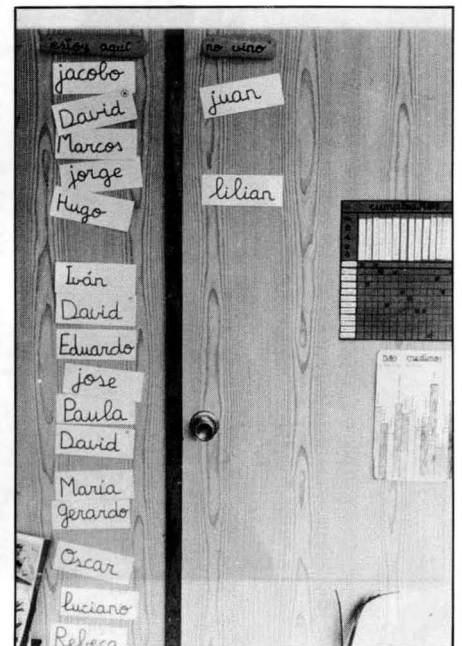 estoy aquí
jacobo
David
Marcos
jorge
Hugo
Iván
David
Eduardo
jose
Paula
David
María
gerardo
Oscar
luciano
Rebeca
no vino
juan
lilian
nos medimos